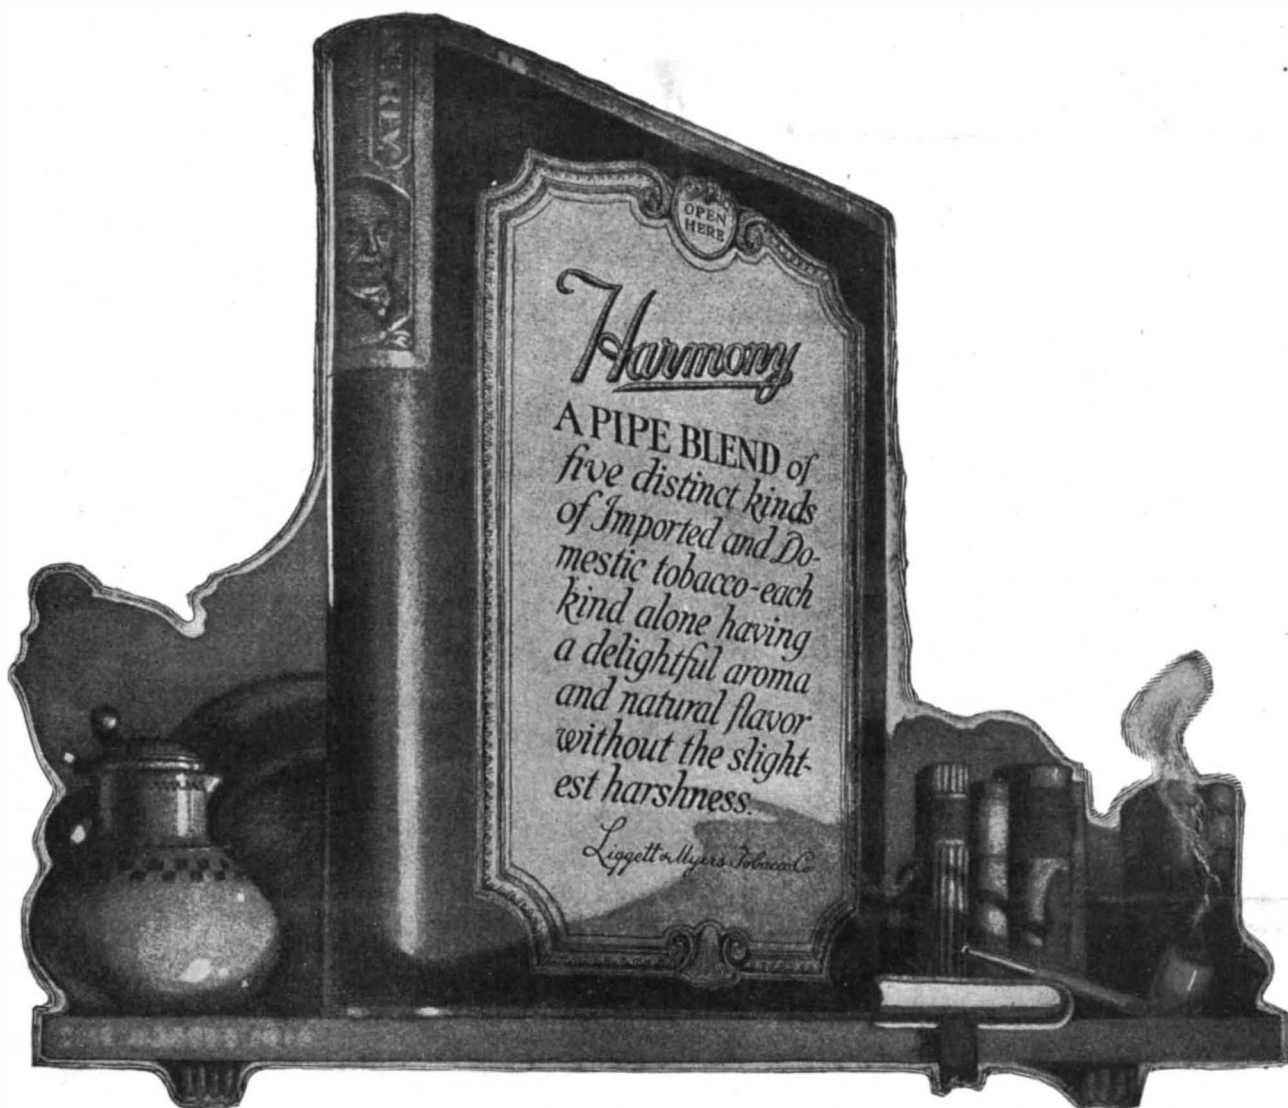 OPEN
HERE
Harmony
A PIPE BLEND of
five distinct kinds
of Imported and Do-
mestic tobacco-each
kind alone having
a delightful aroma
and natural flavor
without the slight-
est harshness.
Liggett & Myers Tobacco Co